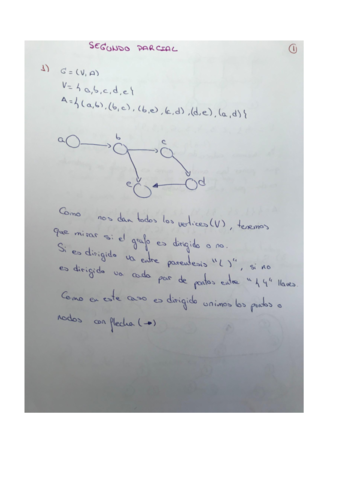 SEGUNDO PARCIAL
1
1) G = (V, A)
V = { a, b, c, d, e }
A = { (a, b), (b, c), (b, e), (c, d), (d, e), (a, d) }
a b c
e d
Como nos dan todos los vertices (V), tenemos
que mirar si el grafo es dirigido o no.
Si es dirigido va entre parentesis "( )", si no
es dirigido va cada par de puntos entre "{ }" llaves
Como en este caso es dirigido unimos los puntos o
nodos con flechas (→)